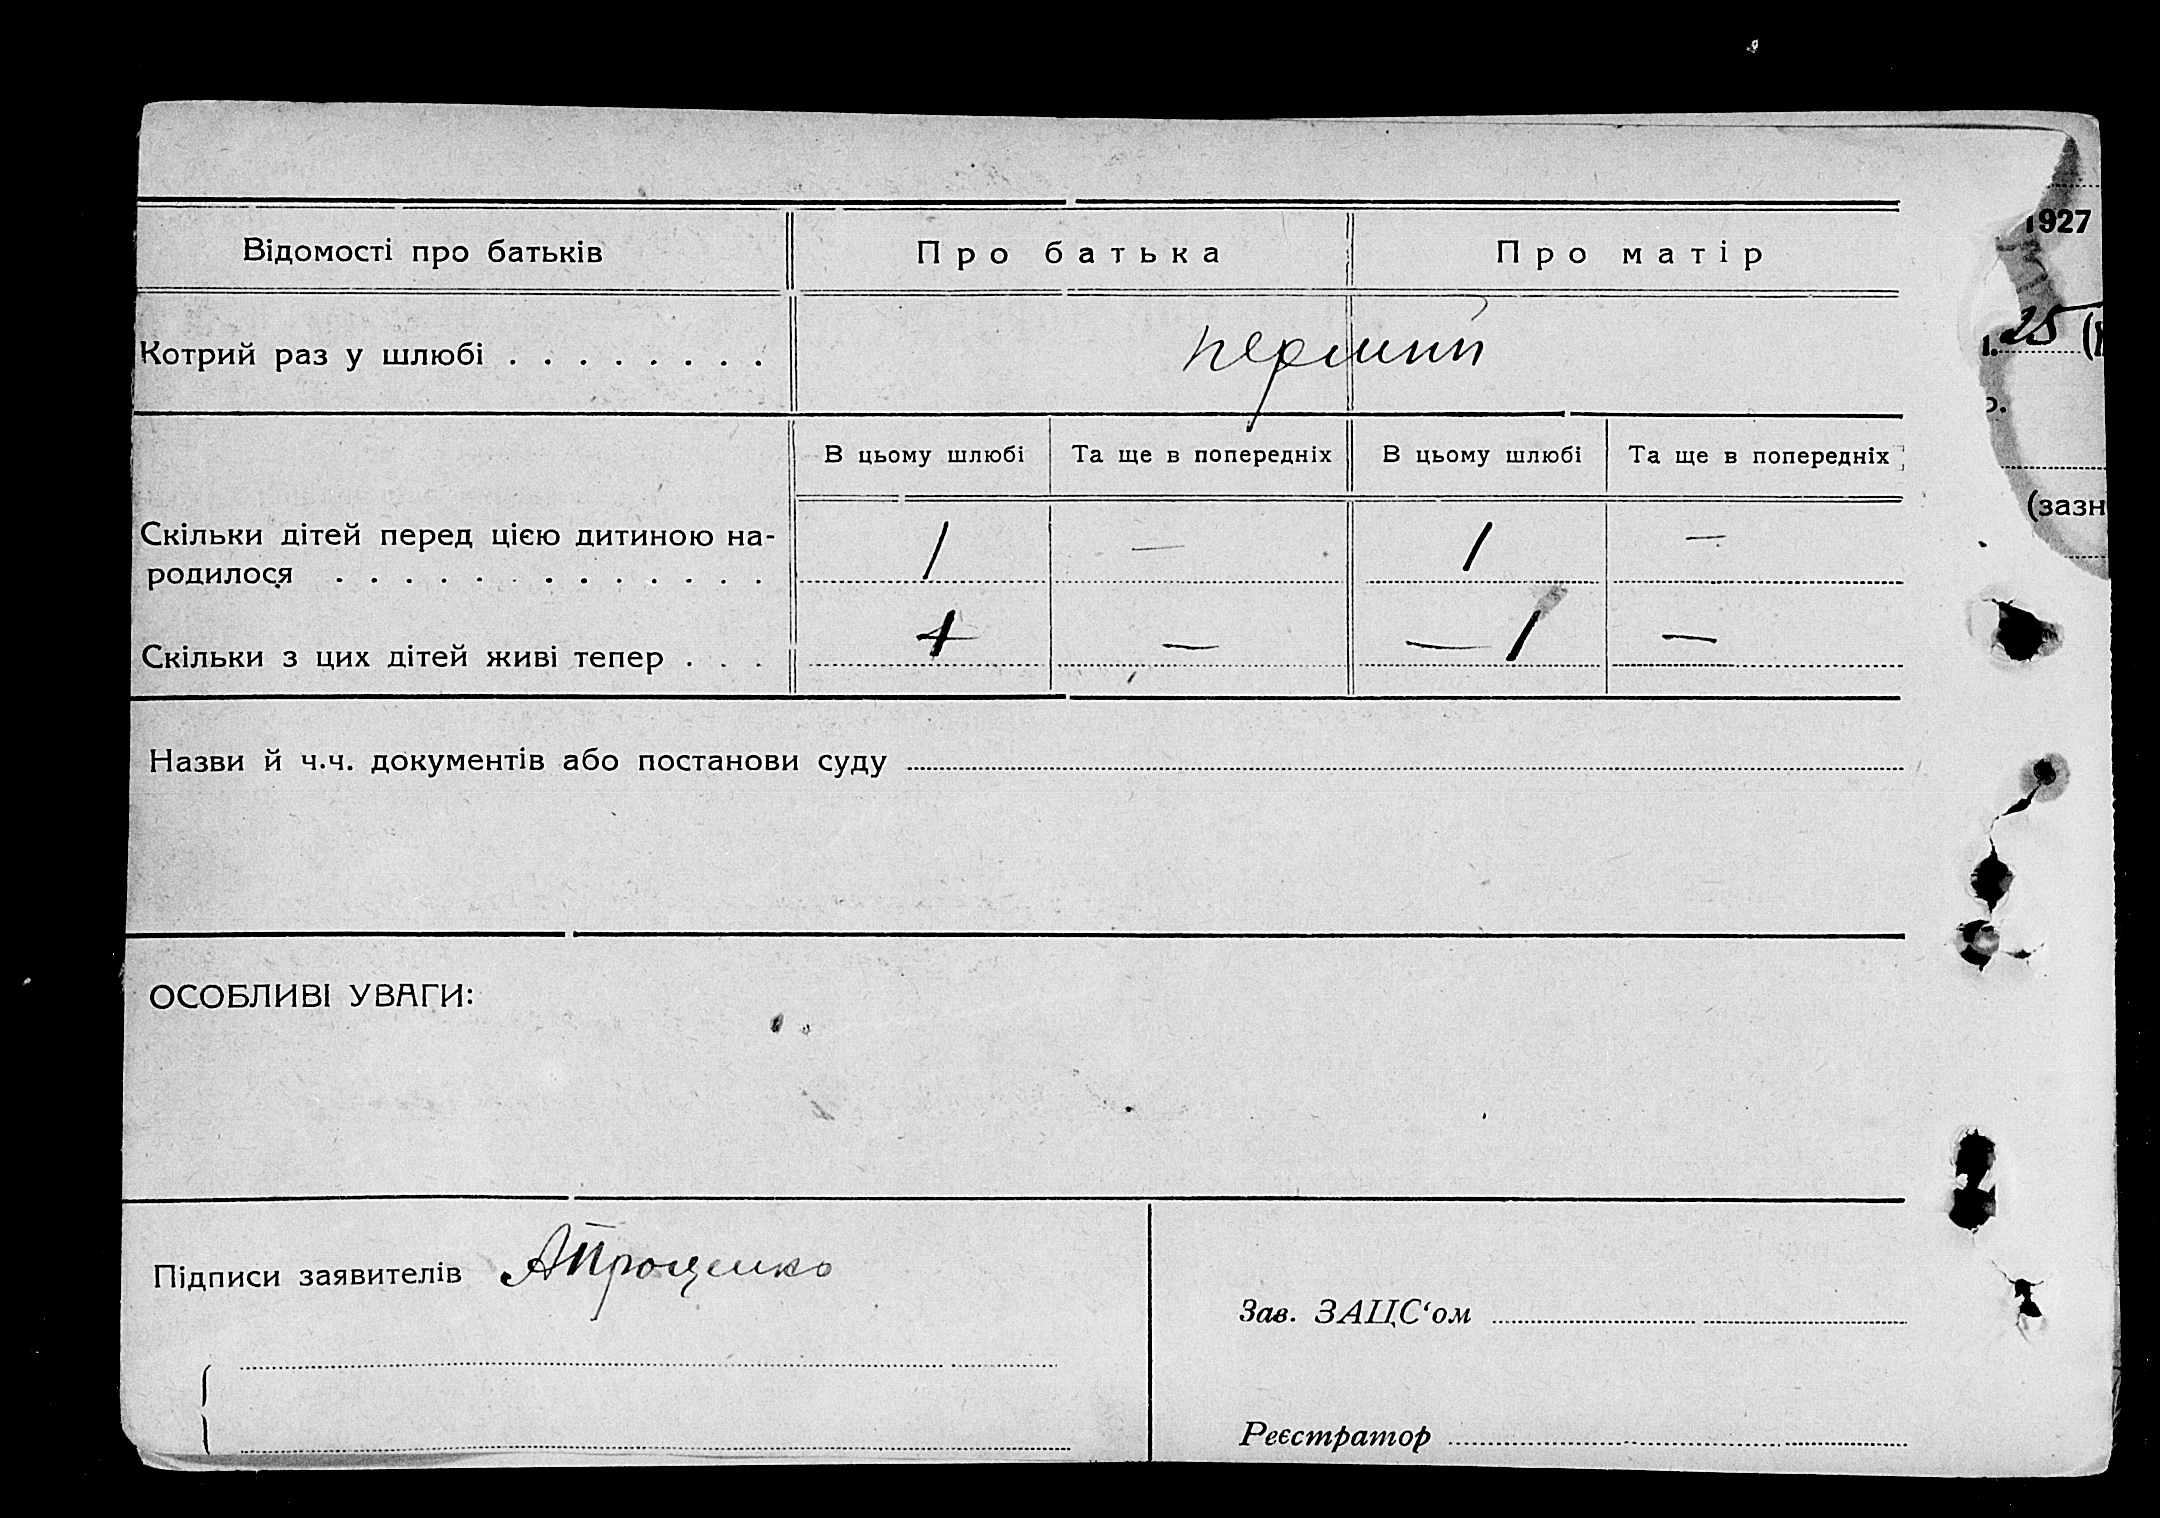 Відомості про батьків Про батька Про матір
1927
Котрий раз у шлюбі . . . . . . . . перший
25 (
В цьому шлюбі Та ще в попередніх В цьому шлюбі Та ще в попередніх
(зазн
Скільки дітей перед цією дитиною на-
родилося . . . . . . . . . . . . . 1 — 1 —
Скільки з цих дітей живі тепер . . . 1 — — 1 —
Назви й ч.ч. документів або постанови суду
ОСОБЛИВІ УВАГИ:
Підписи заявителів АПроценко
Зав. ЗАЦС‘ом
Реєстратор